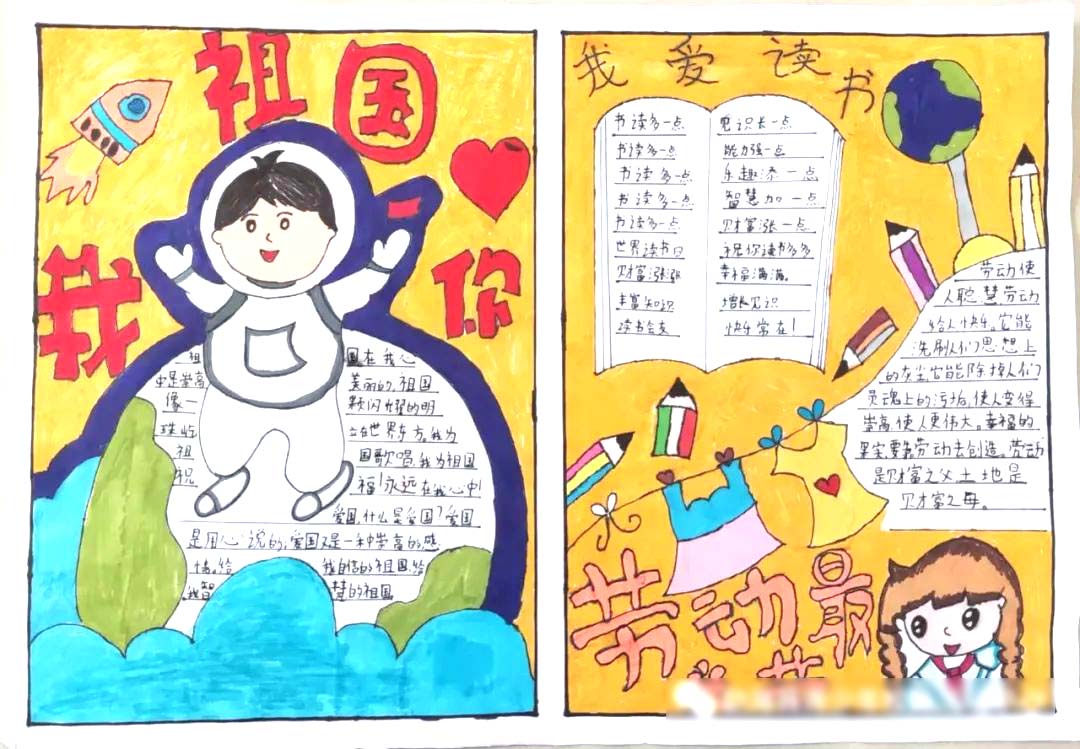 祖国
我 你
祖 国在我心
中是崇高 美丽的,祖国
像一 颗闪耀的明
珠屹 立在世界东方。我为
祖 国歌唱,我为祖国
祝 福!永远在我心中!
爱国,什么是爱国?爱国
是用心说的,爱国又是一种崇高的感
情。给 我自信的祖国,给
我智慧的祖国
我爱读书
书读多一点 见识长一点
书读多一点 能力强一点
书读多一点 乐趣添一点
书读多一点 智慧加一点
书读多一点 财富涨一点
世界读书日 祝你读书多多
财富涨涨 幸福满满。
丰富知识 增长见识
读书会友 快乐常在!
劳动使
人聪慧劳动
给人快乐。它能
洗刷人们思想上
的灰尘它能除掉人们
灵魂上的污垢,使人变得
崇高,使人更伟大。幸福的
果实要靠劳动去创造。劳动
是财富之父土地是
财富之母。
劳动最